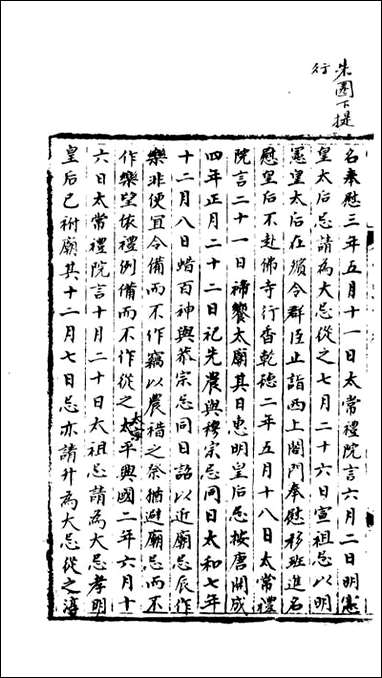 朱圈下提
行
名奉慰三年五月十一日太常禮院言六月二日明憲
皇太后忌請為大忌從之七月二十六日宣祖忌以明
憲皇太后在殯令群臣止詣西上閤門奉慰移班進名
慰皇后不赴佛寺行香乾德二年五月十八日太常禮
院言二十一日禘饗太廟其日惠明皇后忌按唐開成
四年正月二十二日祀先農與穆宗忌同日太和七年
十二月八日蜡百神與敬宗忌同日詔以近廟忌辰作
樂非便宜令備而不作竊以農禮之祭猶避廟忌而不
作樂望依禮例備而不作從之太宗太平興國二年六月十
六日太常禮院言十月二十日太祖忌請為大忌孝明
皇后已祔廟其十二月七日忌亦請升為大忌從之淳